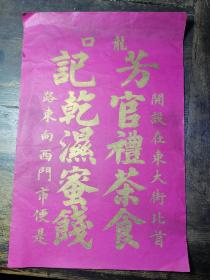 龍口
芳記
開設在東大街北首
官禮茶食
乾濕蜜餞
路東向西門市便是